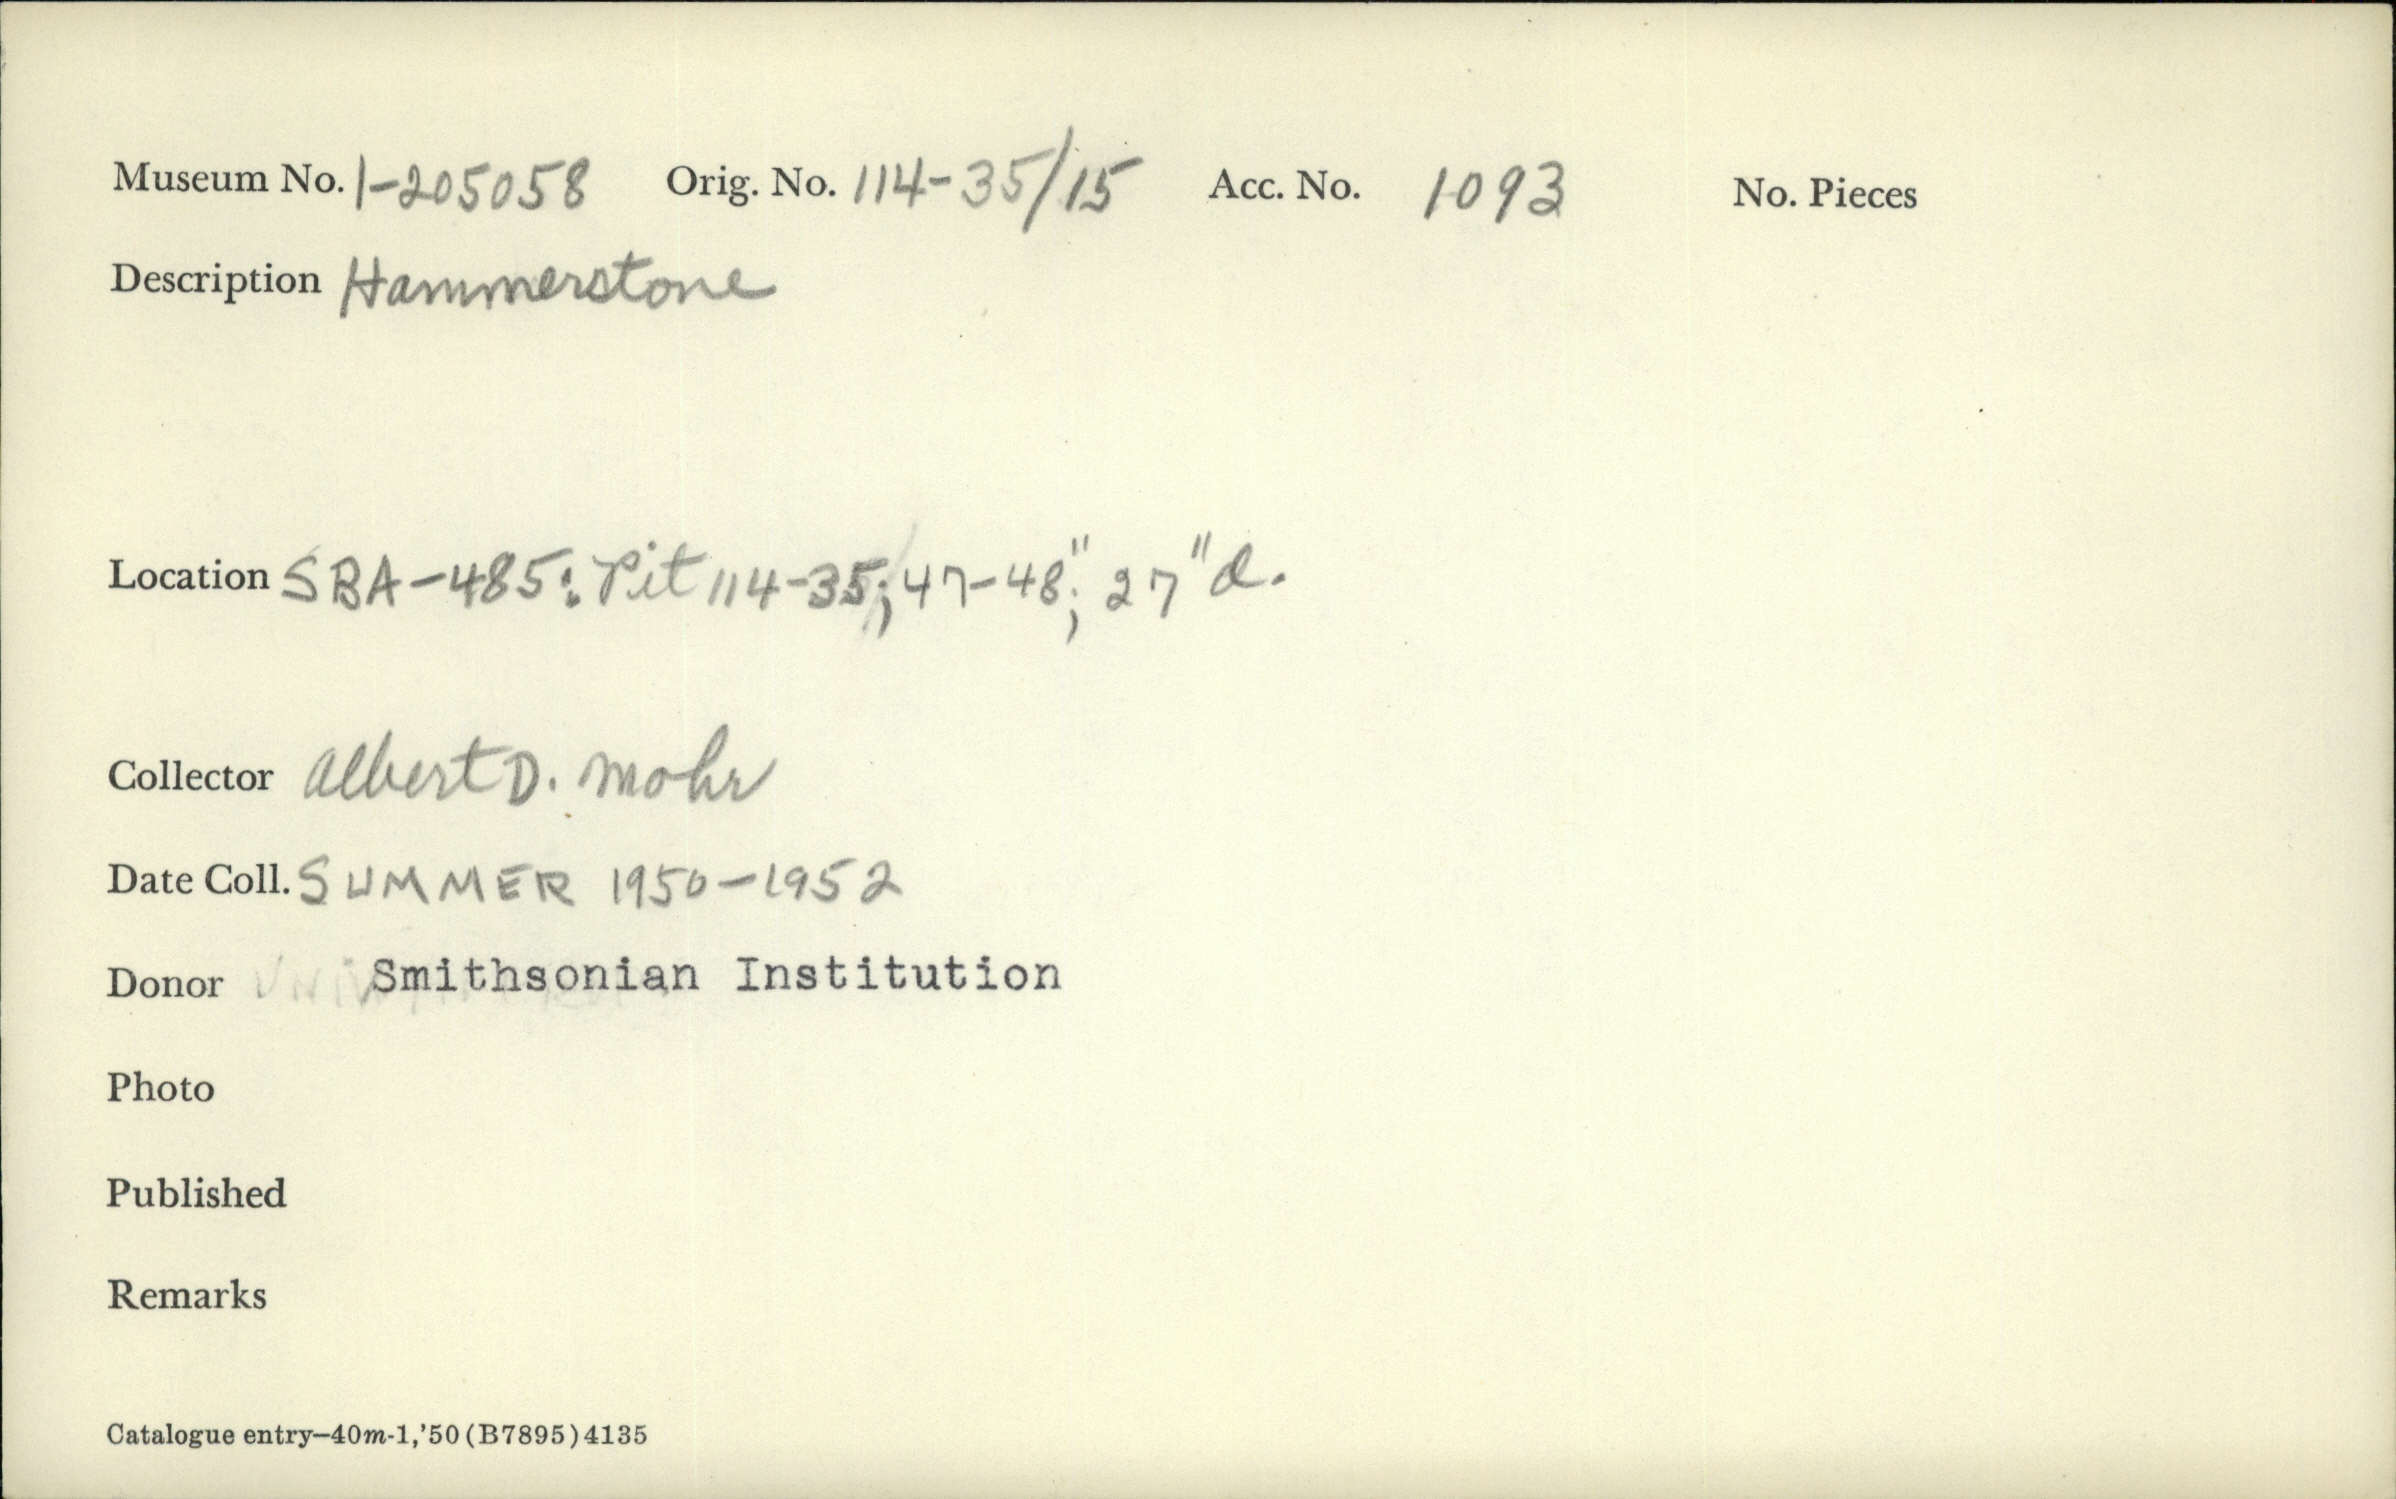 Museum No. 1-205058 Orig. No. 114-35/15 Acc. No. 1093 No. Pieces
Description Hammerstone
Location SBA-485: Pit 114-35; 47-48"; 27" d.
Collector Albert D. Mohr
Date Coll. SUMMER 1950-1952
Donor Smithsonian Institution
Photo
Published
Remarks
Catalogue entry—40m-1,'50 (B7895) 4135